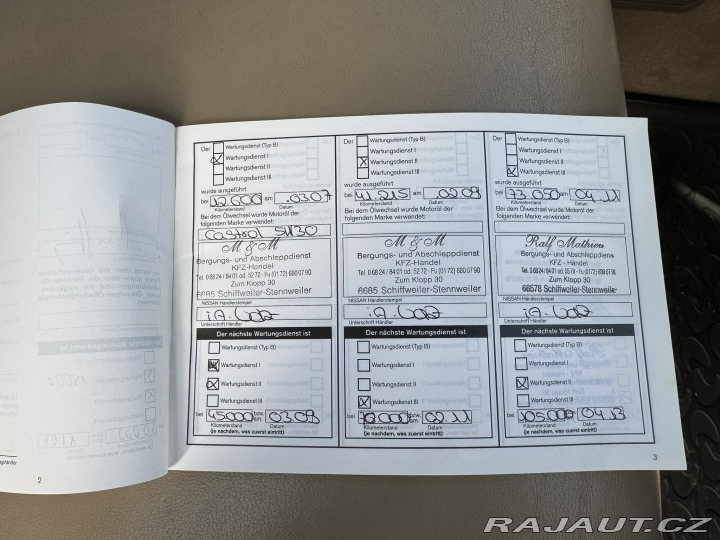 Der Wartungsdienst (Typ B)
Wartungsdienst I
Wartungsdienst II
Wartungsdienst III
wurde ausgeführt
bei 12.600 am 03.07
Kilometerstand Datum
Bei dem Ölwechsel wurde Motoröl der
folgenden Marke verwendet:
Castrol 5W30
M & M
Bergungs- und Abschleppdienst
KFZ-Handel
Tel. 0 68 24 / 84 01 od. 52 72 - Fu (01 72) 680 07 90
Zum Klopp 30
6685 Schiffweiler-Stennweiler
NISSAN Händlerstempel
Unterschrift Händler
Der nächste Wartungsdienst ist
Wartungsdienst (Typ B)
Wartungsdienst I
Wartungsdienst II
Wartungsdienst III
bei 45000 bzw. am 03.09
Kilometerstand Datum
(je nachdem, was zuerst eintritt)
2
Der Wartungsdienst (Typ B)
Wartungsdienst I
Wartungsdienst II
Wartungsdienst III
wurde ausgeführt
bei 41.215 am 02.09
Kilometerstand Datum
Bei dem Ölwechsel wurde Motoröl der
folgenden Marke verwendet:
M & M
Bergungs- und Abschleppdienst
KFZ-Handel
Tel. 0 68 24 / 84 01 od. 52 72 - Fu (01 72) 680 07 90
Zum Klopp 30
6685 Schiffweiler-Stennweiler
NISSAN Händlerstempel
Unterschrift Händler
Der nächste Wartungsdienst ist
Wartungsdienst (Typ B)
Wartungsdienst I
Wartungsdienst II
Wartungsdienst III
bei bzw. am 02.11
Kilometerstand Datum
(je nachdem, was zuerst eintritt)
Der Wartungsdienst (Typ B)
Wartungsdienst I
Wartungsdienst II
Wartungsdienst III
wurde ausgeführt
bei am 04.11
Kilometerstand Datum
Bei dem Ölwechsel wurde Motoröl der
folgenden Marke verwendet:
Ralf Mathieu
Bergungs- u. Abschleppdienst
KFZ - Handel
Tel. 0 68 24 / 84 01 od. 55 78 - Fu (01 72) 680 07 90
Zum Klopp 30
66578 Schiffweiler-Stennweiler
NISSAN Händlerstempel
Unterschrift Händler
Der nächste Wartungsdienst ist
Wartungsdienst (Typ B)
Wartungsdienst I
Wartungsdienst II
Wartungsdienst III
bei 105000 bzw. am 04.13
Kilometerstand Datum
(je nachdem, was zuerst eintritt)
3
RAJAUT.CZ